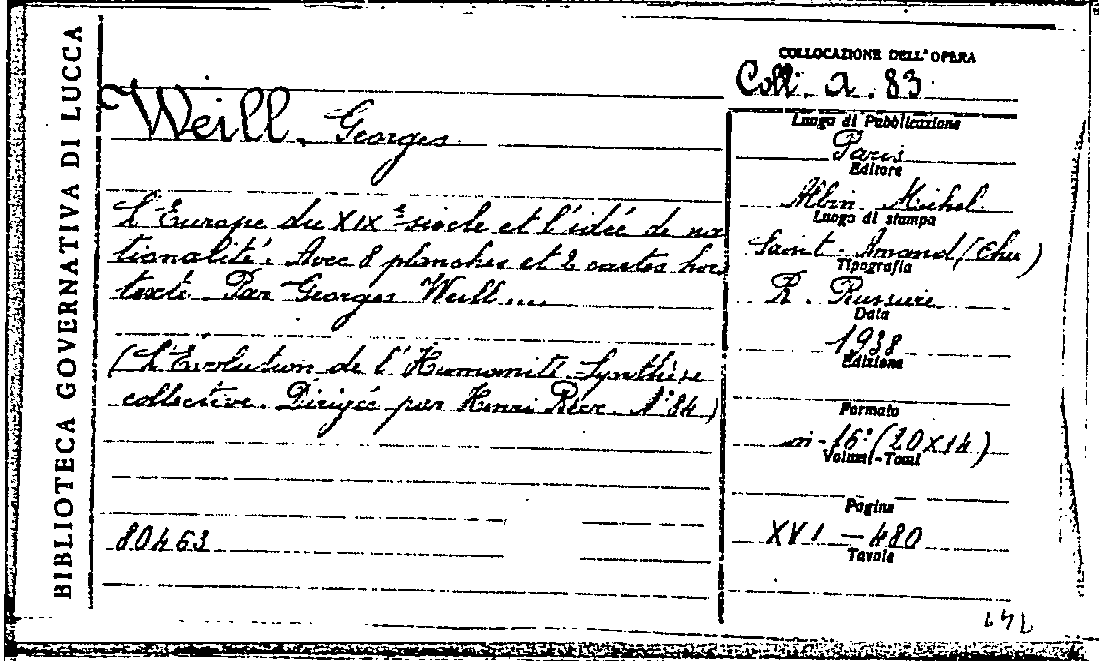 BIBLIOTECA GOVERNATIVA DI LUCCA
Weill, Georges
L'Europe du XIXe siècle et l'idée de na
tionalité. Avec 8 planches et 2 cartes hors
texte. Par Georges Weill....
(L'Évolution de l'Humanité. Synthèse
collective. Dirigée par Henri Berr. N° 84)
80463
COLLOCAZIONE DELL'OPERA
Coll. a. 83
Luogo di Pubblicazione
Paris
Editore
Albin Michel
Luogo di stampa
Saint-Amand (Cher)
Tipografia
R. Bussière
Data
1938
Edizione
Formato
in-16° (20x14)
Volumi-Tomi
Pagine
XVI - 480
Tavole